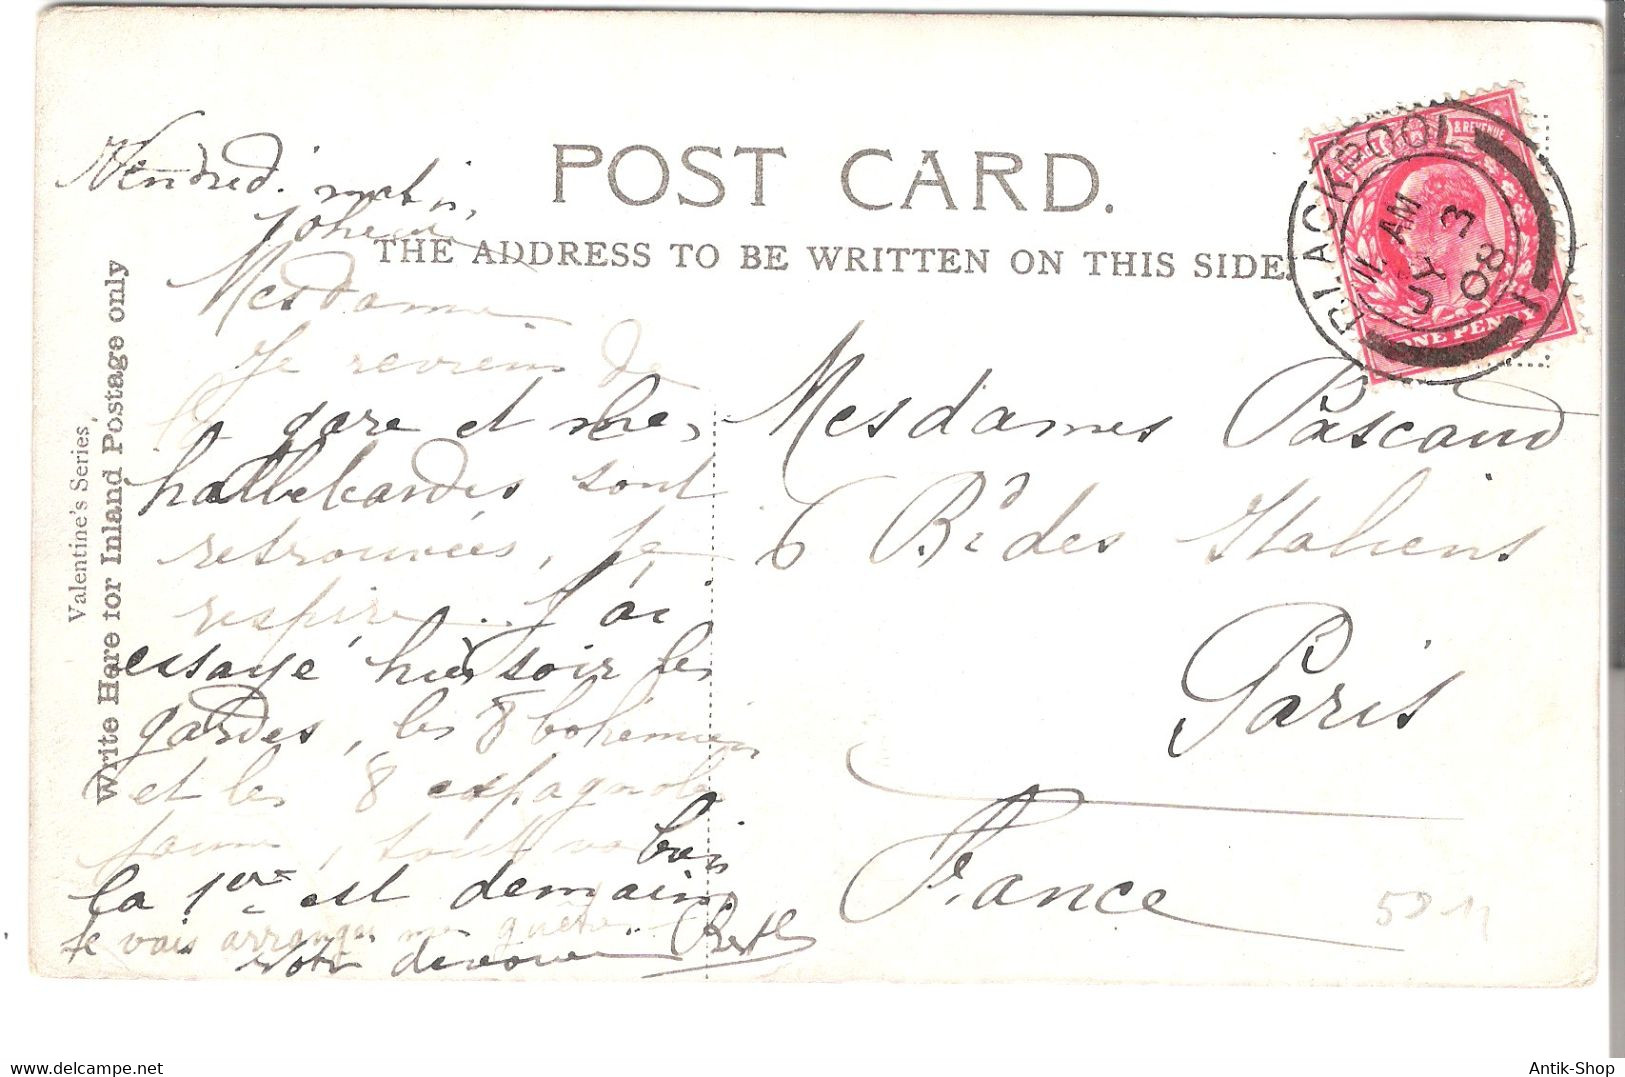 POST CARD.
THE ADDRESS TO BE WRITTEN ON THIS SIDE.
Valentine's Series
Write Here for Inland Postage only
Vendredi matin,
Mesdames
Je reviens de
la gare et mes
hallebardes sont
retrouvées, je
respire.. J'ai
essayé hier soir les
gardes, les 8 bohémiens
et les 8 espagnoles
tout va bien
la 1ère est demain
Je vais arranger ma
Votre dévouée Berthe
Mesdames Pascaud
6 Bd des Italiens
Paris
France
BLACKPOOL
11 AM
JY 3
08
& REVENUE
ONE PENNY
5011
Visit www.delcampe.net
Antik-Shop